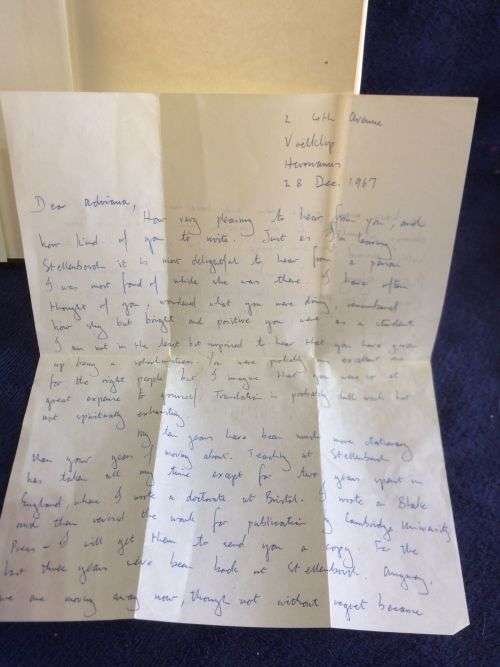 2 10th Avenue
Voëlklip
Hermanus
28 Dec. 1967
Dear Adriana,
How very pleasing to hear from you, and
how kind of you to write. Just as I'm leaving
Stellenbosch it is most delightful to hear from a person
I was most fond of while she was there. I have often
thought of you, wondered what you were doing, remembered
how shy but bright and positive you were as a student.
I am not in the least bit surprised to hear that you have given
up being a You were probably an excellent one
for the right people but I imagine that you were so at
great expense to yourself. Translation is probably dull work but
not spiritually exhausting.
My ten years have been much more stationary
than your years of moving about. Teaching at Stellenbosch
has taken all my time except for two years spent in
England where I wrote a doctorate at Bristol. I wrote on Blake
and then revised the work for publication by Cambridge University
Press - I will get them to send you a copy. For the
last three years we've been back at Stellenbosch. Anyway,
we are moving away now, though not without regret because